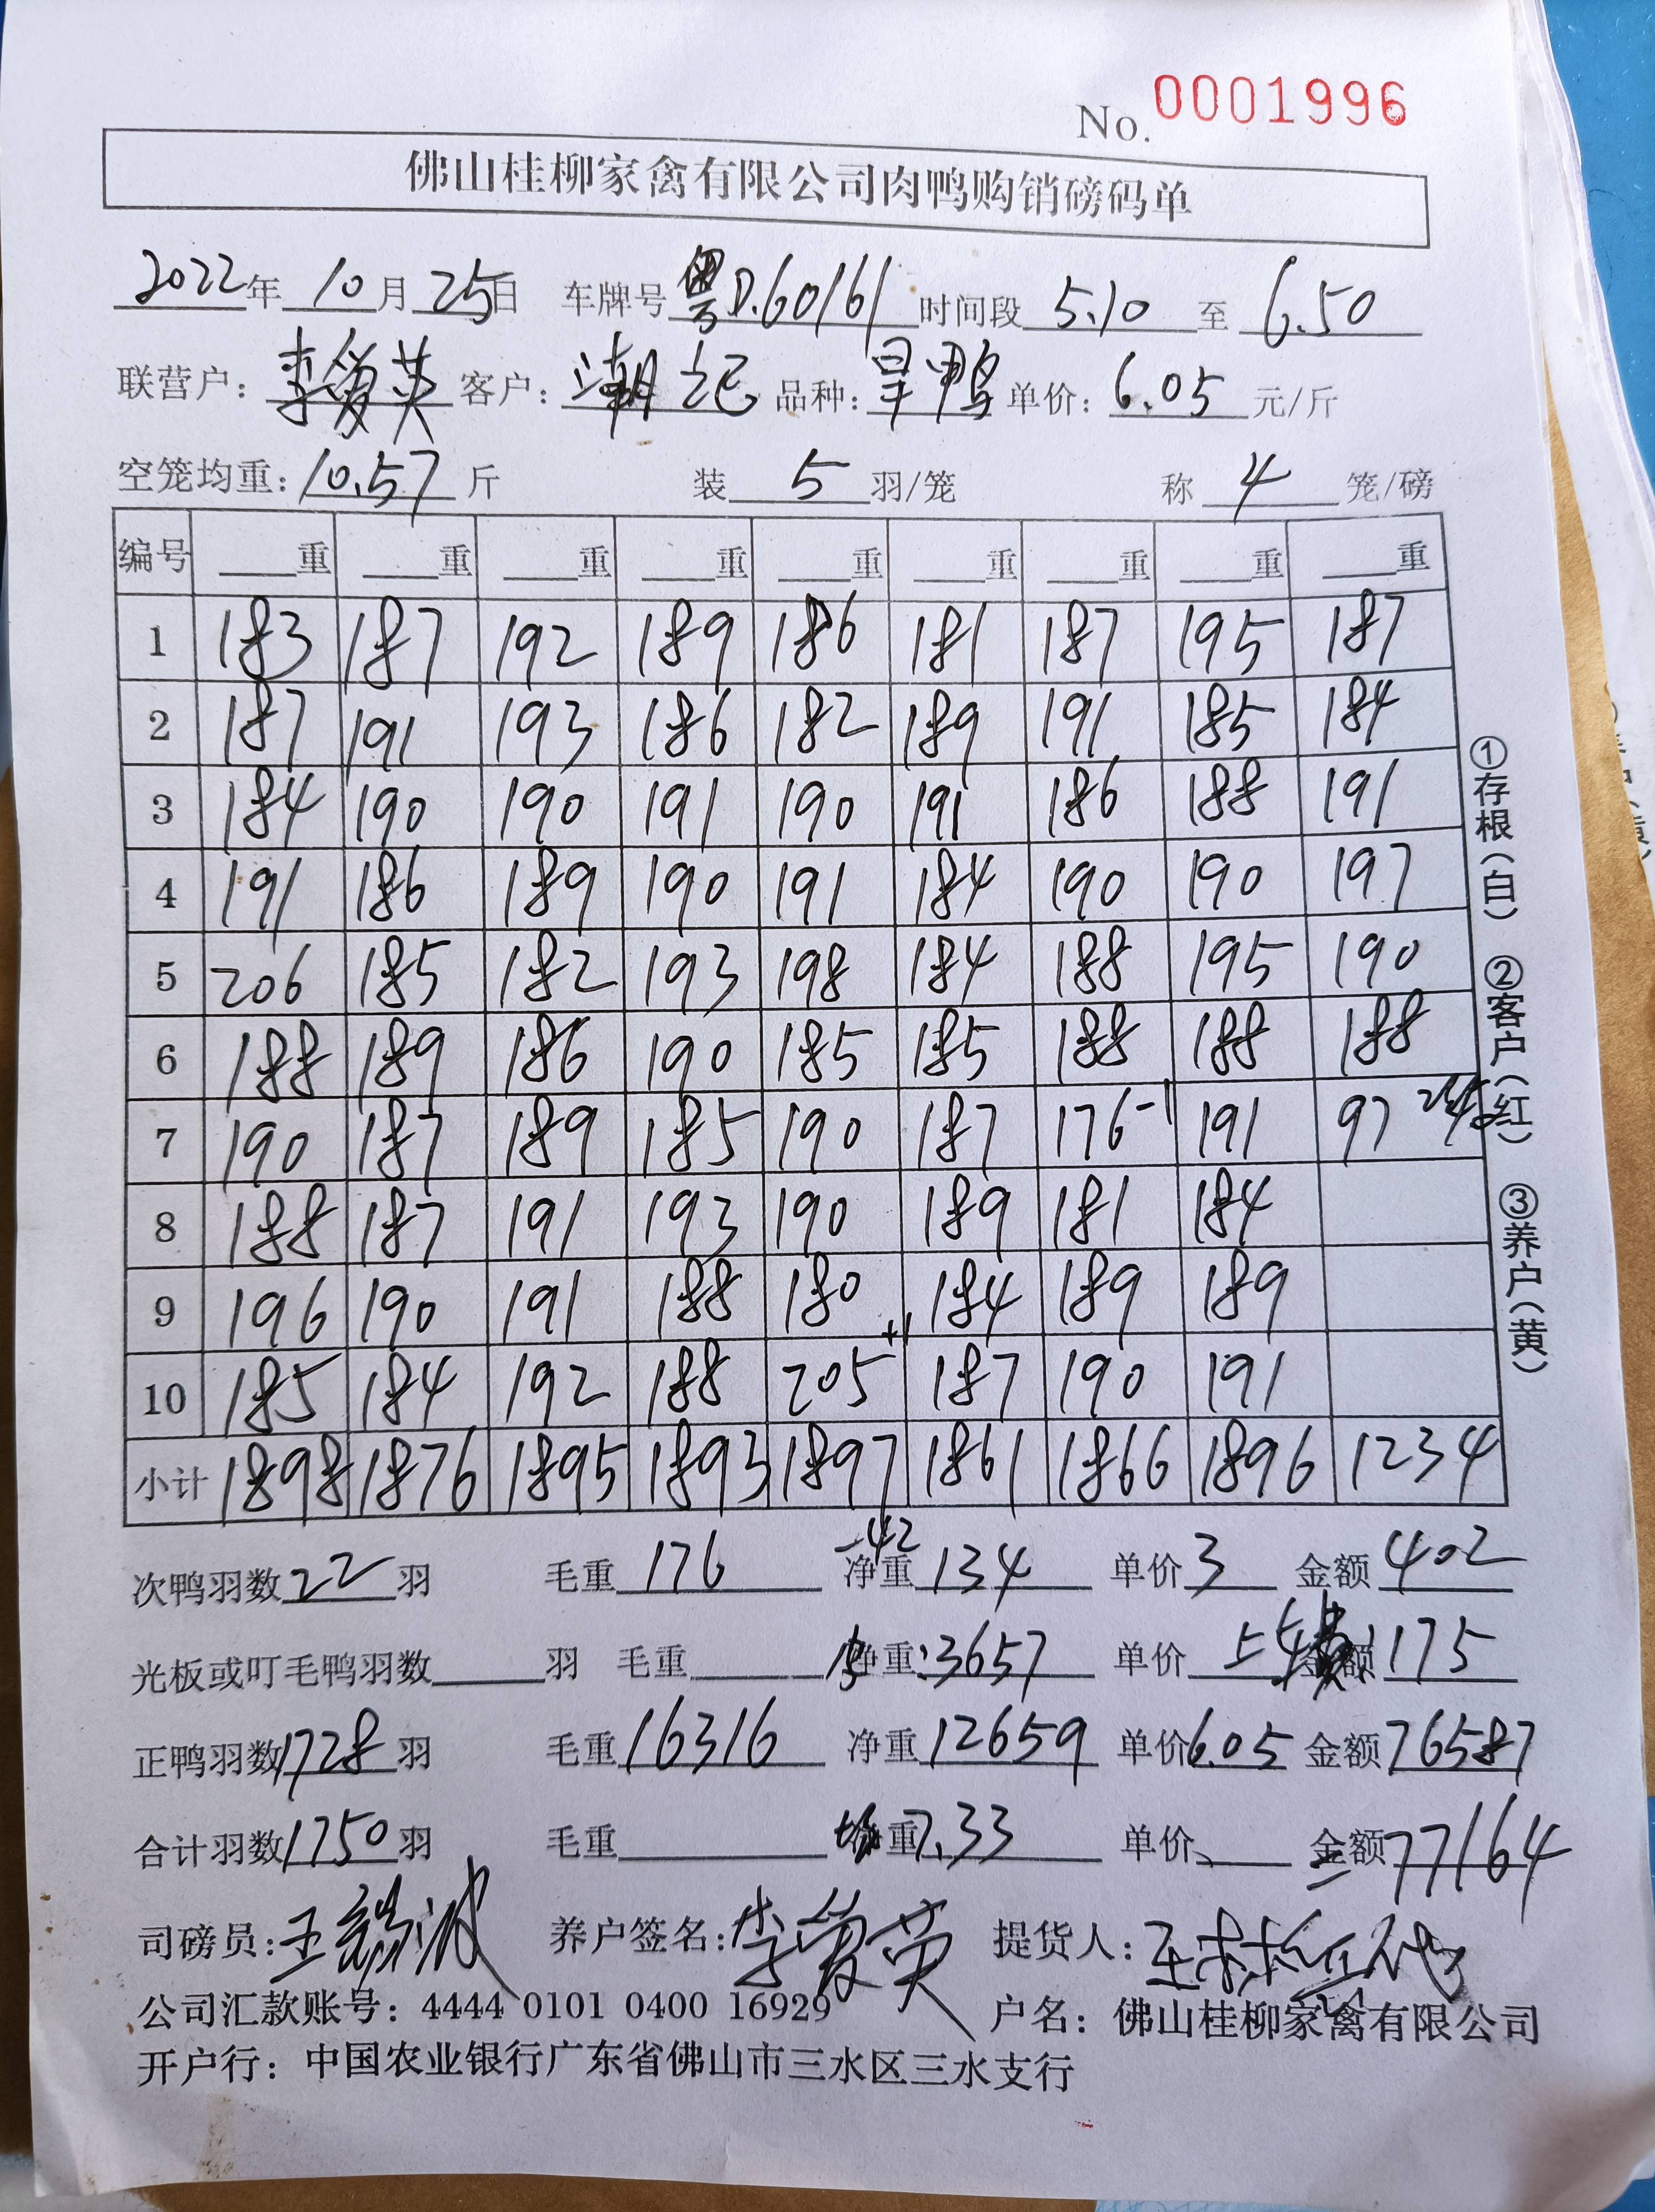 No. 0001996
佛山桂柳家禽有限公司肉鸭购销磅码单
2022年 10月 25日 车牌号 粤D.60161 时间段 5.10 至 6.50
联营户: 李爱英 客户: 潮记 品种: 旱鸭 单价: 6.05 元/斤
空笼均重: 10.57 斤 装 5 羽/笼 称 4 笼/磅
编号 重 重 重 重 重 重 重 重 重
1 183 187 192 189 186 181 187 195 187
2 187 191 193 186 182 189 191 185 184
3 184 190 190 191 190 191 186 188 191
4 191 186 189 190 191 184 190 190 197
5 206 185 182 193 198 184 188 195 190
6 188 189 186 190 185 185 188 188 188
7 190 187 189 185 190 187 176-1 191 97
8 188 187 191 193 190 189 181 184
9 196 190 191 188 180 184 189 189
10 185 184 192 188 205+1 187 190 191
小计 1898 1876 1895 1893 1897 1861 1866 1896 1234
次鸭羽数 22 羽 毛重 176 -42 净重 134 单价 3 金额 402
光板或叮毛鸭羽数 羽 毛重 净重: 3657 单价 金额 175
正鸭羽数 1728 羽 毛重 16316 净重 12659 单价 6.05 金额 76587
合计羽数 1750 羽 毛重 重 7.33 单价 金额 77164
司磅员: 王 波 养户签名: 李爱英 提货人:
公司汇款账号: 4444 0101 0400 16929 户名: 佛山桂柳家禽有限公司
开户行: 中国农业银行广东省佛山市三水区三水支行
①存根(白) ②客户(红) ③养户(黄)